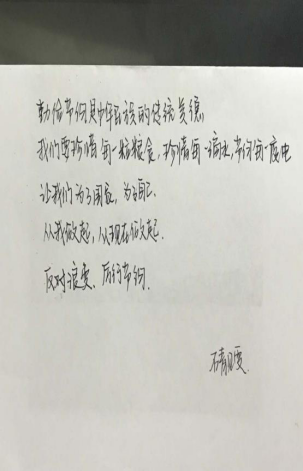 勤俭节约是中华民族的传统美德,
我们要珍惜每一粒粮食,珍惜每一滴水,节约每一度电
让我们为了国家,为了自己.
从我做起,从现在做起.
反对浪费、厉行节约.